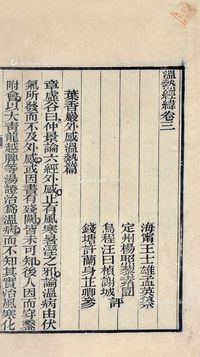 溫熱經緯卷三
海甯王士雄孟英纂
定州楊照藜素園
烏程汪曰楨謝城評
錢塘許蘭身芷卿參
葉香巖外感溫熱篇
章虛谷曰仲景論六經外感止有風寒暑溼之邪論溫病由伏
氣所發而不及外感或因書有殘闕皆未可知後人因而穿鑿
附會以大青龍越脾等湯證治爲溫病而不知其實治風寒化